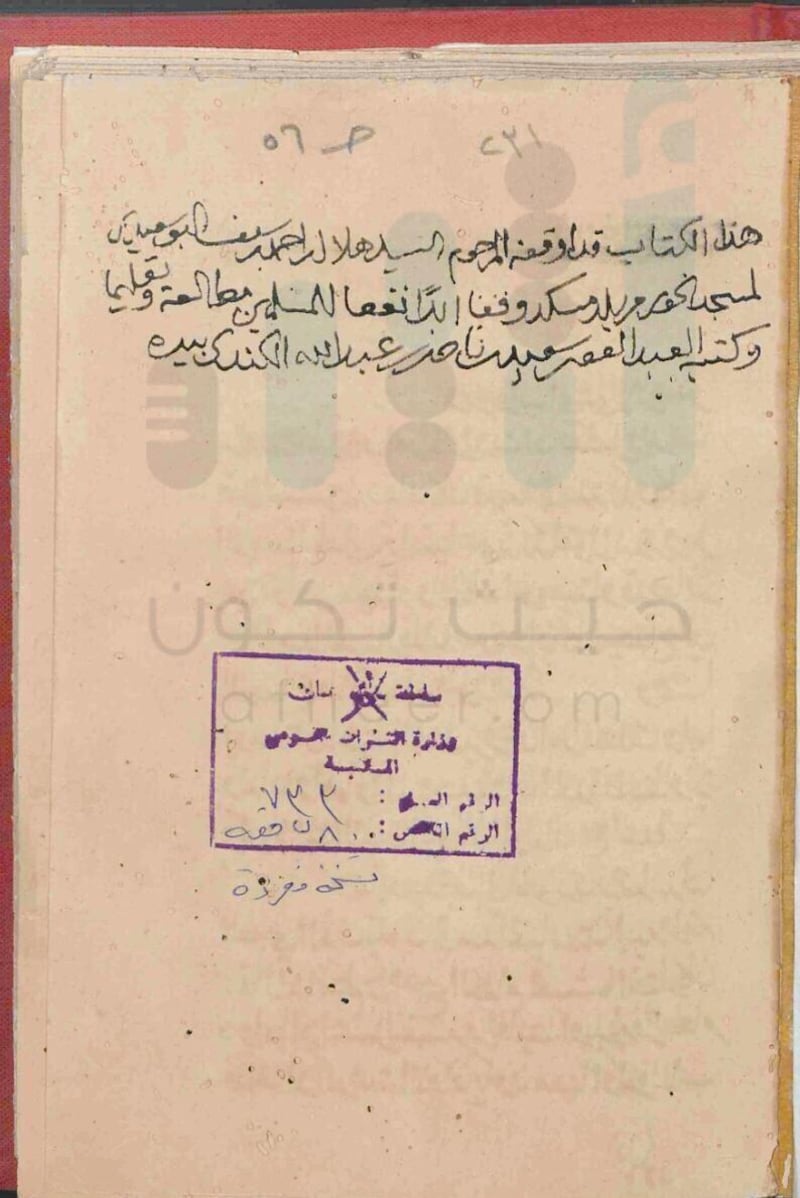 ٢٣١ ص ٥٦
هذا الكتاب قد اوقفه المرحوم السيد هلال بن احمد بن سيف البوسعيدي
لمسجد من بلد مسكد وقفا ابدًا نفعا للمسلمين مطالعة وتعليما
وكتبه العبد الفقير سعيد بن ناصر بن عبدالله الكندي بيده
حيث تكون
سلطنة عمان
وزارة التراث القومي
المكتبة
الرقم العام : ٧٣٣
الرقم الخاص : ٨٠
نسخة مفردة